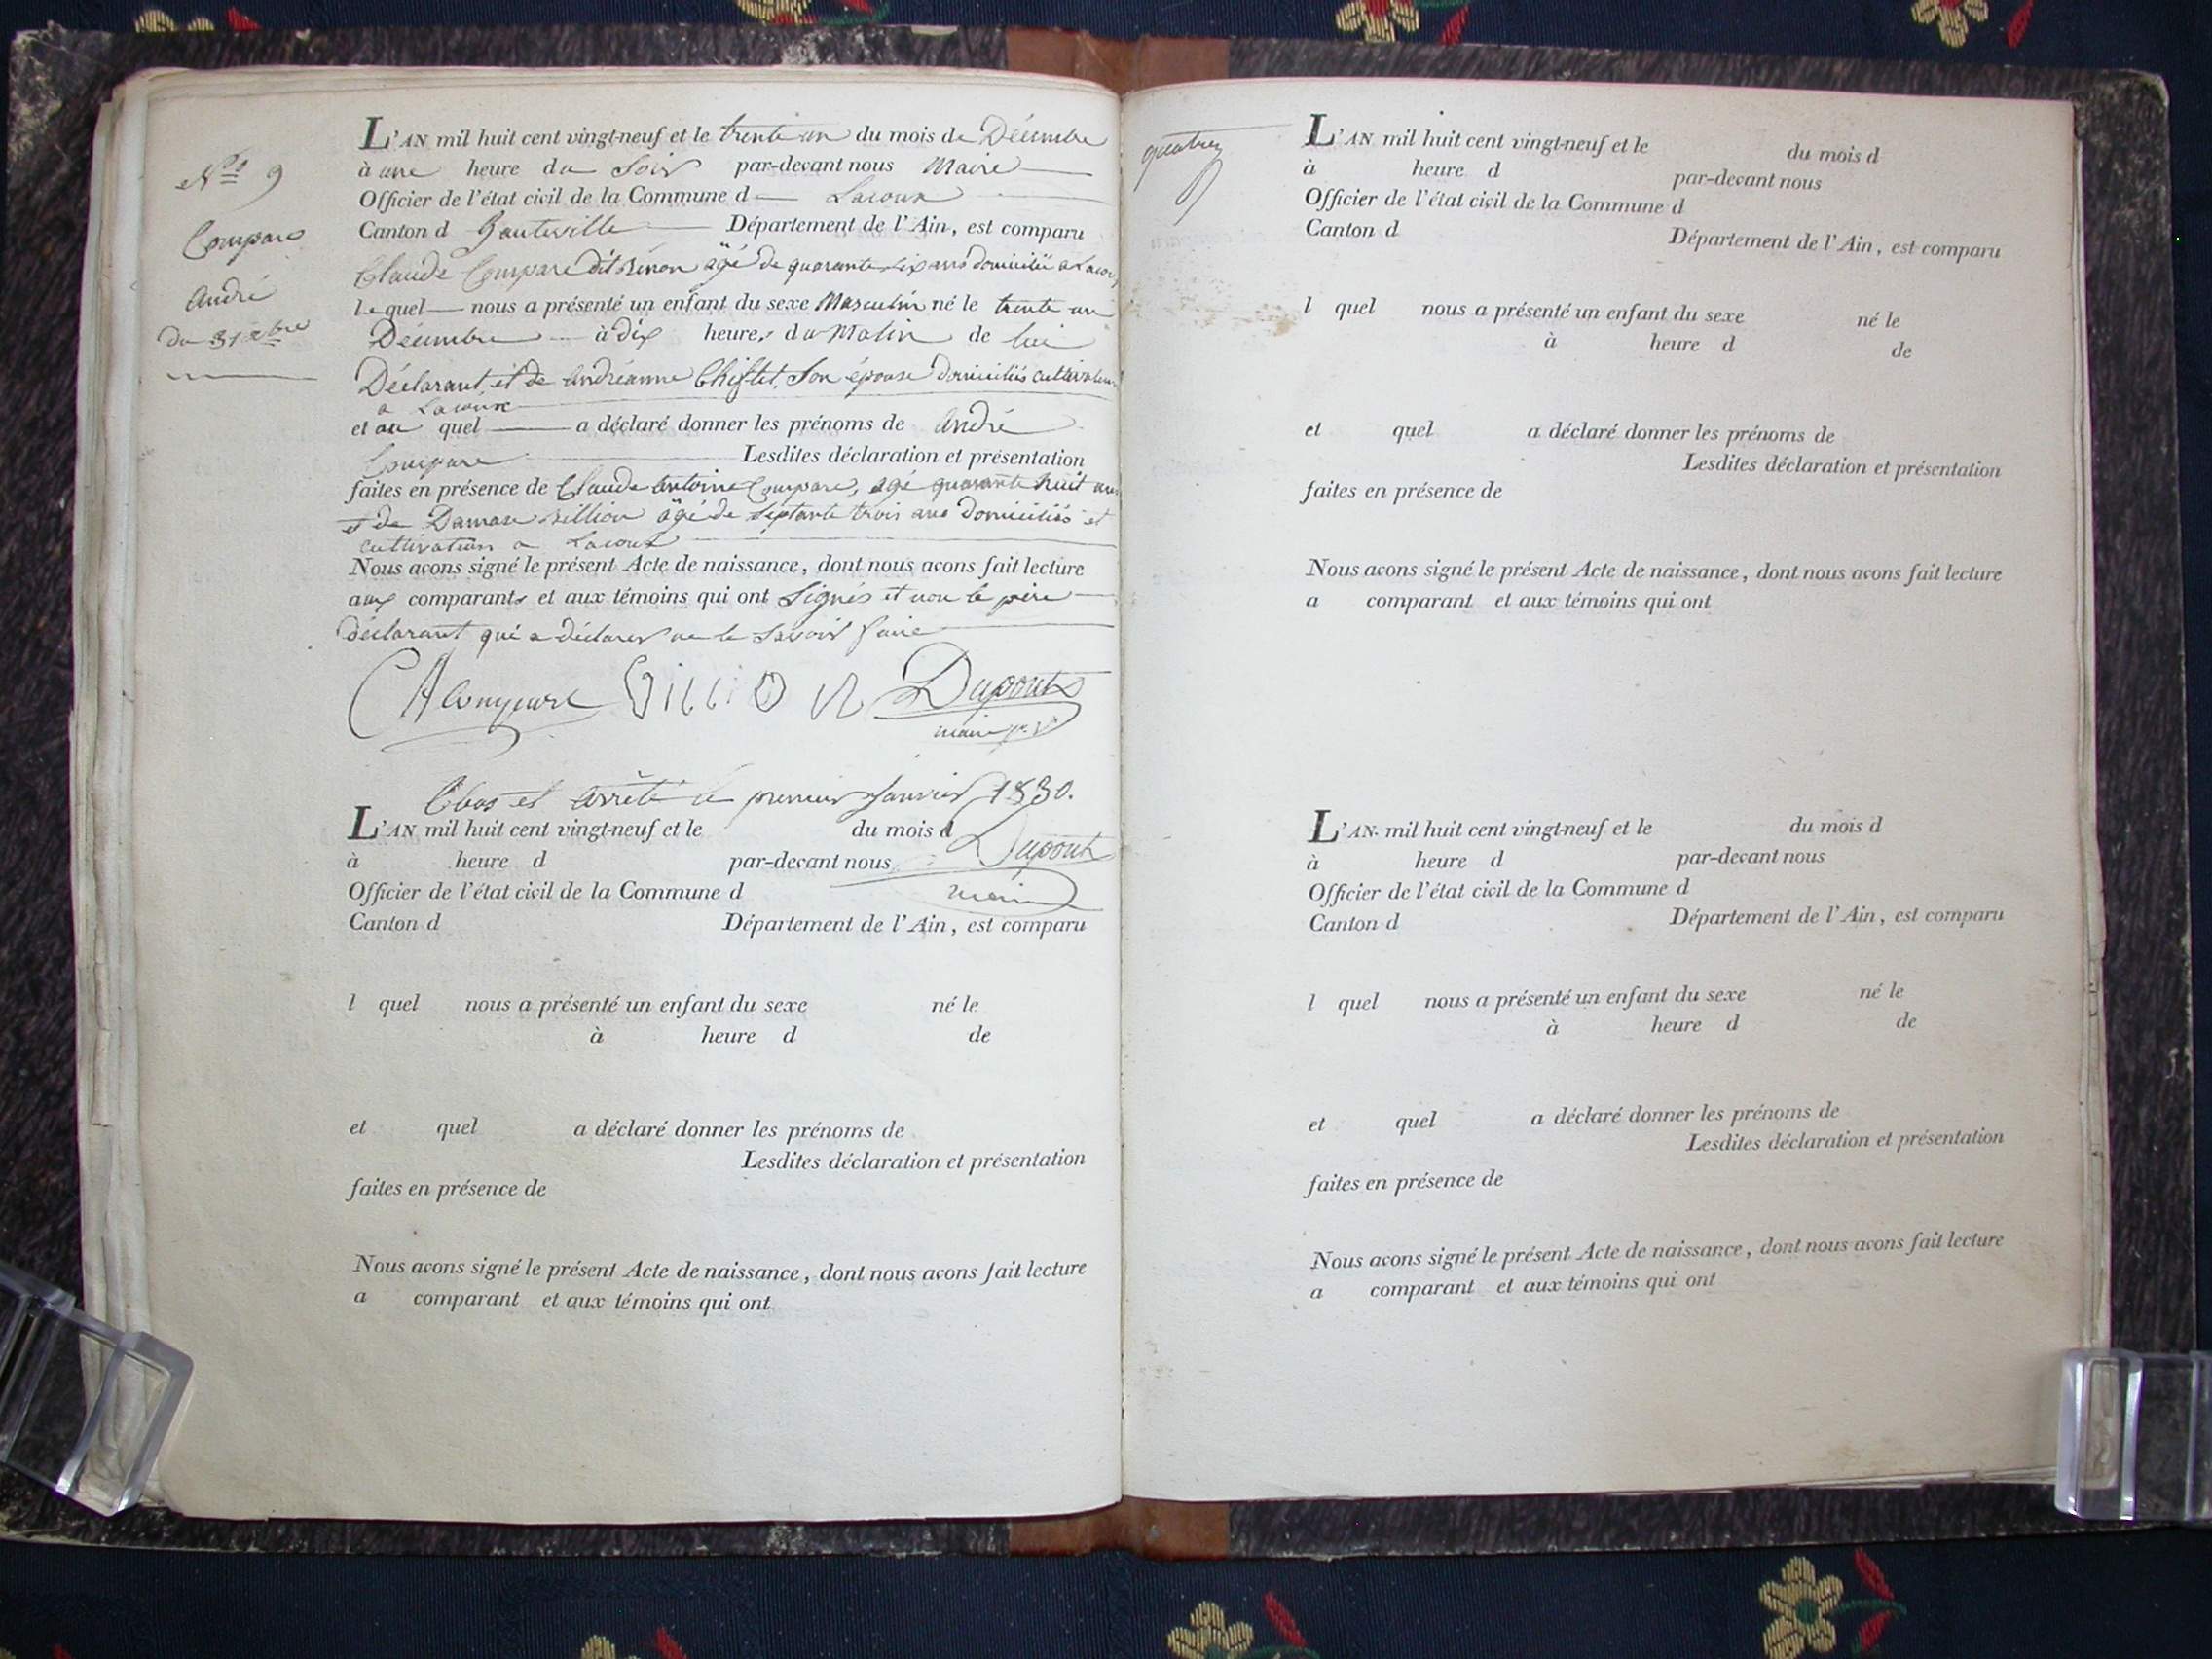 N° 9
Compare
André
du 31 Xbre
L'AN mil huit cent vingt-neuf et le trente un du mois de Décembre
à une heure du Soir par-devant nous Maire
Officier de l'état civil de la Commune d Lacoux
Canton d'hauteville Département de l'Ain, est comparu
Claude Compare dit agé de quarante six ans domicilié a Lacoux
lequel nous a présenté un enfant du sexe Masculin né le trente un
Décembre à dix heures du Matin de lui
Déclarant, et de Andréanne Chiflet, Son épouse domiciliés cultivateurs
a Lacoux
et au quel a déclaré donner les prénoms de André
Compare Lesdites déclaration et présentation
faites en présence de Claude Antoine Compare, agé quarante huit ans
et de Billion âgé de Septante trois ans domiciliés et
cultivateurs a Lacoux
Nous avons signé le présent Acte de naissance, dont nous avons fait lecture
aux comparants et aux témoins qui ont Signés et non le père
déclarant qui a déclarer ne le Savoir faire
CA Compare BILLION Dupont
maire
Clos et Arrêté le premier Janvier 1830.
Dupont
maire
L'AN mil huit cent vingt-neuf et le du mois d
à heure d par-devant nous
Officier de l'état civil de la Commune d
Canton d Département de l'Ain, est comparu
l quel nous a présenté un enfant du sexe né le
à heure d de
et quel a déclaré donner les prénoms de
Lesdites déclaration et présentation
faites en présence de
Nous avons signé le présent Acte de naissance, dont nous avons fait lecture
a comparant et aux témoins qui ont
L'AN mil huit cent vingt-neuf et le du mois d
à heure d par-devant nous
Officier de l'état civil de la Commune d
Canton d Département de l'Ain, est comparu
l quel nous a présenté un enfant du sexe né le
à heure d de
et quel a déclaré donner les prénoms de
Lesdites déclaration et présentation
faites en présence de
Nous avons signé le présent Acte de naissance, dont nous avons fait lecture
a comparant et aux témoins qui ont
L'AN mil huit cent vingt-neuf et le du mois d
à heure d par-devant nous
Officier de l'état civil de la Commune d
Canton d Département de l'Ain, est comparu
l quel nous a présenté un enfant du sexe né le
à heure d de
et quel a déclaré donner les prénoms de
Lesdites déclaration et présentation
faites en présence de
Nous avons signé le présent Acte de naissance, dont nous avons fait lecture
a comparant et aux témoins qui ont